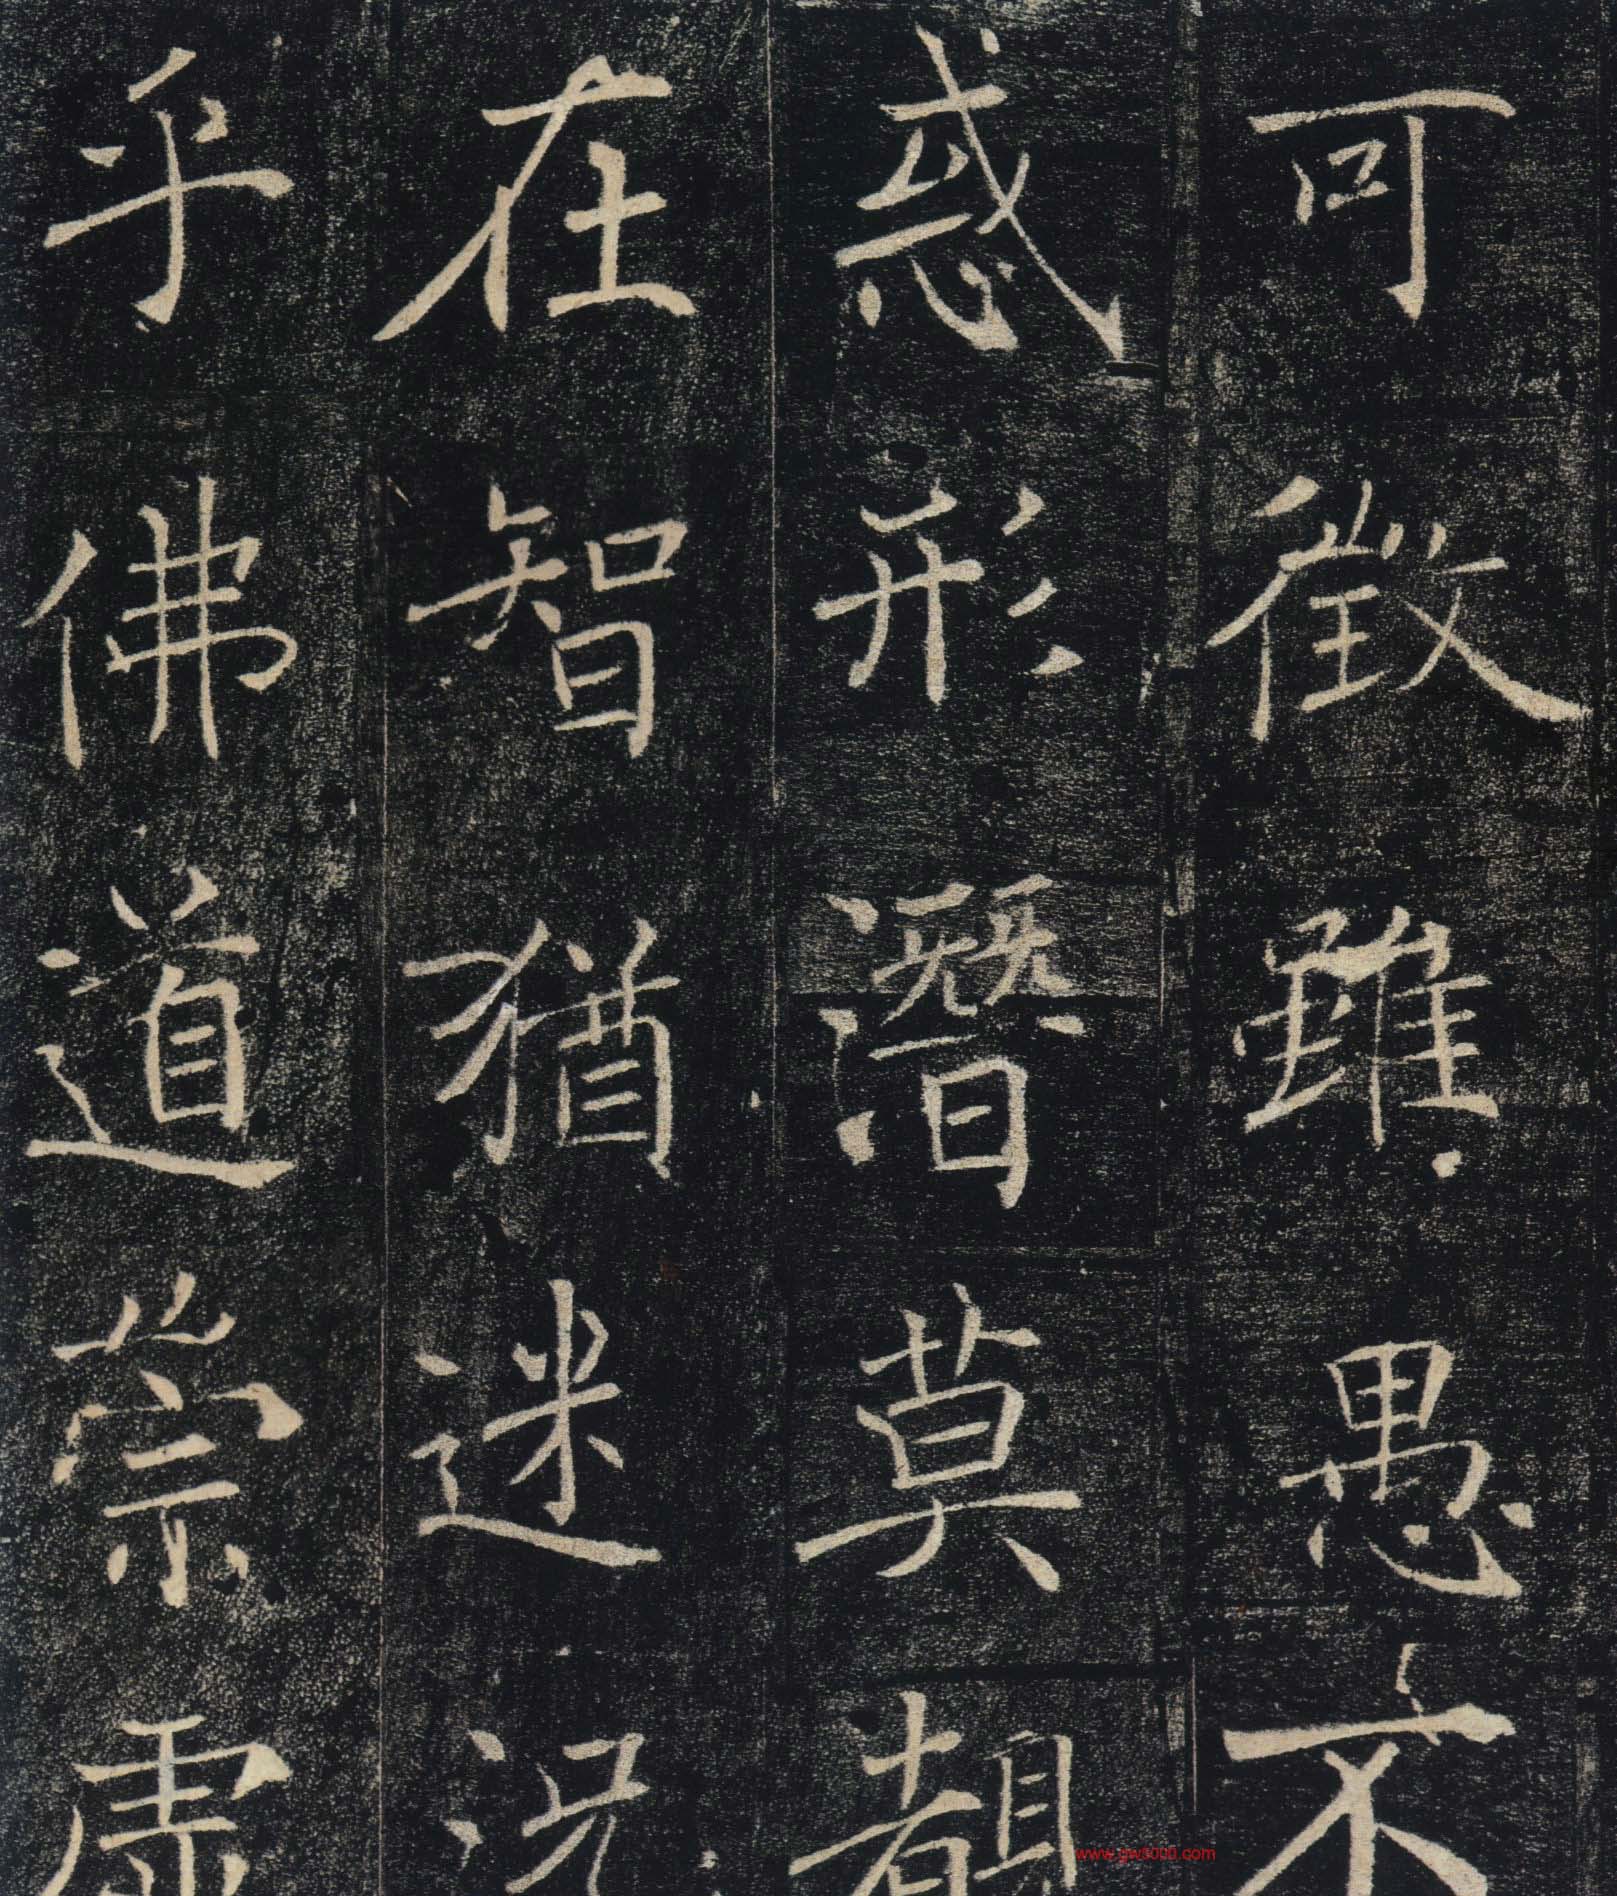 可徵雖愚不
惑形潛莫覩
在智猶迷況
乎佛道崇虛
www.gw5000.com